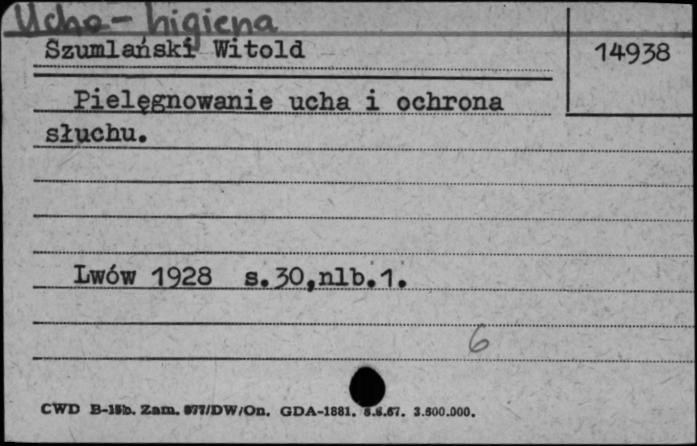 Ucho - higiena
Szumlański Witold
14938
Pielęgnowanie ucha i ochrona
słuchu.
Lwów 1928 s.30,nlb.1.
6
CWD B-15b. Zam. 877/DW/On. GDA-1881. 8.6.67. 3.600.000.